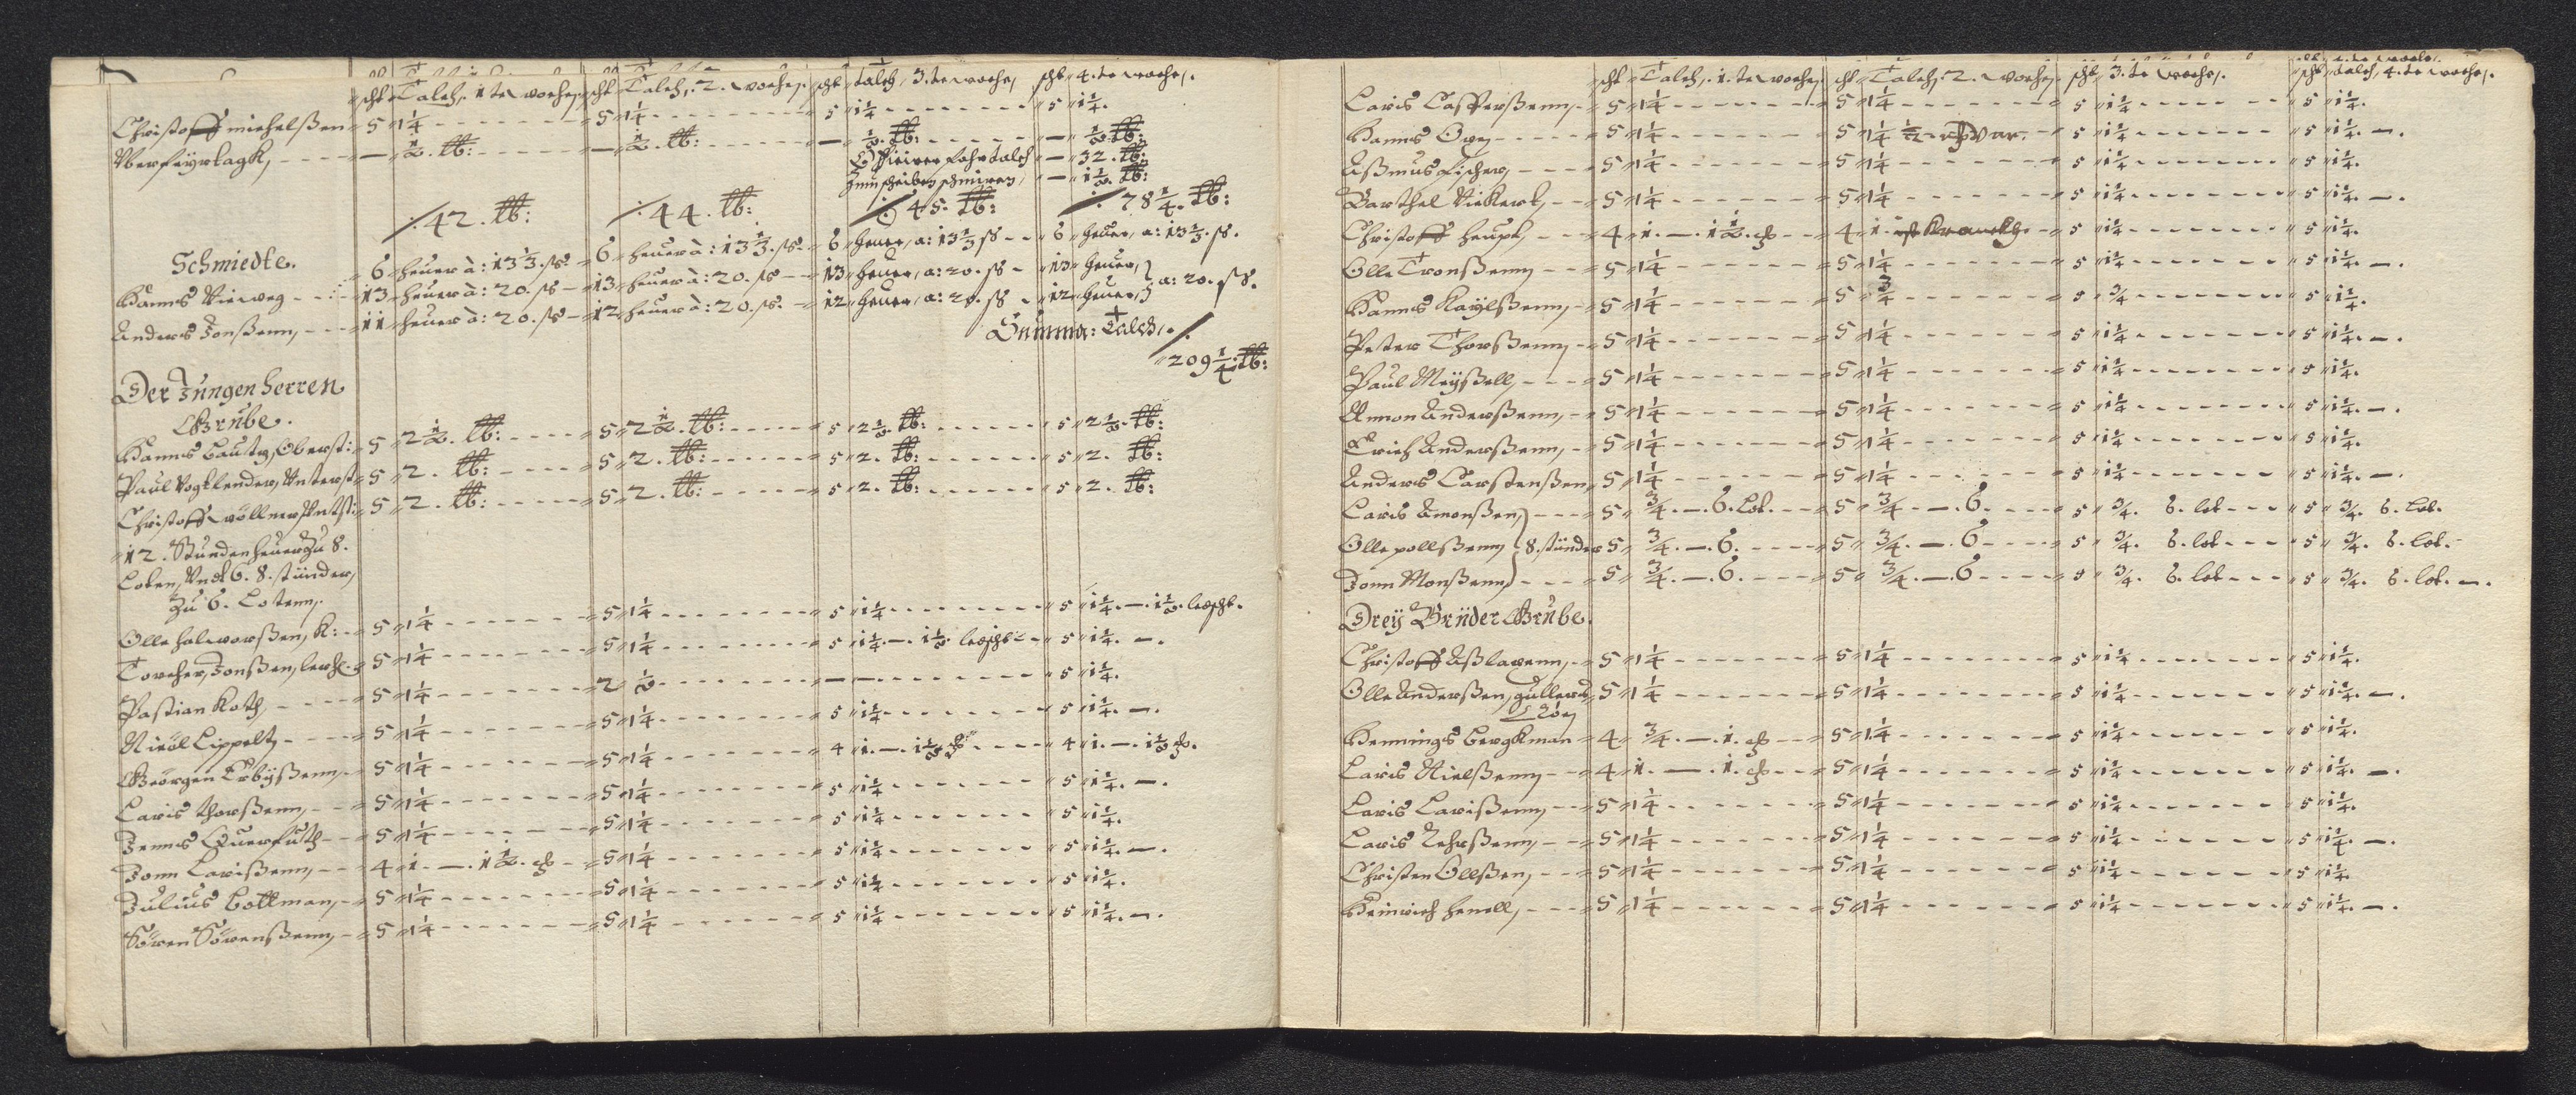 scht Talch, 1 te wochen, scht Talch, 2. wochen, scht talch, 3. te wochen, scht 4. te wochen,
Christoff michelßen 5 1¼ 5 1¼ 5 1¼ 5 1¼.
— ½. lb: — ½. lb: — ½. lb: — ½ lb:
— 32. lb:
— 1½. lb:
42. lb: 44. lb: 45. lb: 78¼. lb:
Schmiedte.
6 heuer à: 13⅓. ß 6 heuer à: 13⅓. ß 6 heuer, a: 13⅓ ß 6 heuer, a: 13⅓. ß.
Hanns Vieweg 13 heuer à: 20. ß 13 heuer à: 20. ß 13 heuer, a: 20. ß 13 heuer, } a: 20. ß.
Anders Jonßenn, 11 heuer à: 20. ß 12 heuer à: 20. ß 12 heuer, a: 20. ß 12 heuer, }
Summa: Talch,
209¼. lb:
Der Jungen herren
Grube.
Hanns Lautz, Oberst: 5 2½. lb: 5 2½. lb: 5 2½. lb: 5 2½. lb:
Paul Vogtlender, Unterst: 5 2. lb: 5 2. lb: 5 2. lb: 5 2. lb:
Christoff 5 2. lb: 5 2. lb: 5 2. lb: 5 2. lb:
12. Stunden heuer Zu 8.
Loten, Undt 6. 8. stünder,
Zu 6. Lotenn,
Olle halvorßen, K: 5 1¼ 5 1¼ 5 1¼ 5 1¼. —. 1½.
Jonßen, 5 1¼ 5 1¼ 5 1¼. —. 1½. 5 1¼. —.
Pastian Koth, 5 1¼ 2 ½ — — 5 1¼.
Nicol Lippelt, 5 1¼ 5 1¼ 5 1¼ 5 1¼. —.
Georgen 5 1¼ 5 1¼ 4 1. —. 1½ 4 1. —. 1½
Laris thorßenn, 5 1¼ 5 1¼ 5 1¼ 5 1¼. —.
Jenns Querfuth 5 1¼ 5 1¼ 5 1¼ 5 1¼.
Jonn Larißenn, 4 1. —. 1½. 5 1¼ 5 1¼ 5 1¼. —.
Julius Bottman, 5 1¼ 5 1¼ 5 1¼ 5 1¼.
Sören Sörenßenn, 5 1¼ 5 1¼ 5 1¼ 5 1¼. —.
scht Talch, 1. te wochen, scht Talch, 2. wochen, scht 3. te wochen, scht talch, 4. te wochen,
Laris Casperßenn, 5 1¼ 5 1¼ 5 1¼ 5 1¼.
Hanns 5 1¼ 5 1¼ ½ 5 1¼ 5 1¼. —.
Aßmus fischer, 5 1¼ 5 1¼ 5 1¼ 5 1¼.
Barthel 5 1¼ 5 1¼ 5 1¼ 5 1¼. —.
Christoff heupt, 4 1. —. 1½. 4 1. ist Kranckh 5 1¼ 5 1¼.
Olle Tronßenn 5 1¼ 5 1¼ 5 1¼ 5 1¼. —.
Hanns 5 1¼ 5 ¾ 5 ¾ 5 1¼.
Peter Thorßenn 5 1¼ 5 1¼ 5 1¼ 5 1¼. —.
Paul Meyßell, 5 1¼ 5 1¼ 5 1¼ 5 1¼.
Amon Anderßenn, 5 1¼ 5 1¼ 5 1¼ 5 1¼. —.
Erich Anderßenn, 5 1¼ 5 1¼ 5 1¼ 5 1¼.
Anders Carstenßen, 5 1¼ 5 1¼ 5 1¼ 5 1¼. —.
Laris Amonßen, } 5 ¾. —. 6. Lot. 5 ¾. —. 6. 5 ¾. 6. lot 5 ¾. 6. Lot.
Olle pollßenn } 8. stünder 5 ¾. —. 6. 5 ¾. —. 6 5 ¾. 6. lot 5 ¾. 6. lot.
Jonn Monßenn } 5 ¾. —. 6. 5 ¾. —. 6 5 ¾. 6. lot 5 ¾. 6. lot. —.
Dreij Brüder Grube.
Christoff Aßlavenn, 5 1¼ 5 1¼ 5 1¼ 5 1¼.
Olle Anderßen, 5 1¼ 5 1¼ 5 1¼ 5 1¼. —.
Hennings Bergkman 4 ¾. —. 1. 5 1¼ 5 1¼ 5 1¼.
Laris Nielßenn 4 1. —. 1. 5 1¼ 5 1¼ 5 1¼. —.
Laris Larißenn 5 1¼ 5 1¼ 5 1¼ 5 1¼.
Laris 5 1¼ 5 1¼ 5 1¼ 5 1¼. —.
Christen Ollßen, 5 1¼ 5 1¼ 5 1¼ 5 1¼.
Heinrich henell, 5 1¼ 5 1¼ 5 1¼ 5 1¼. —.